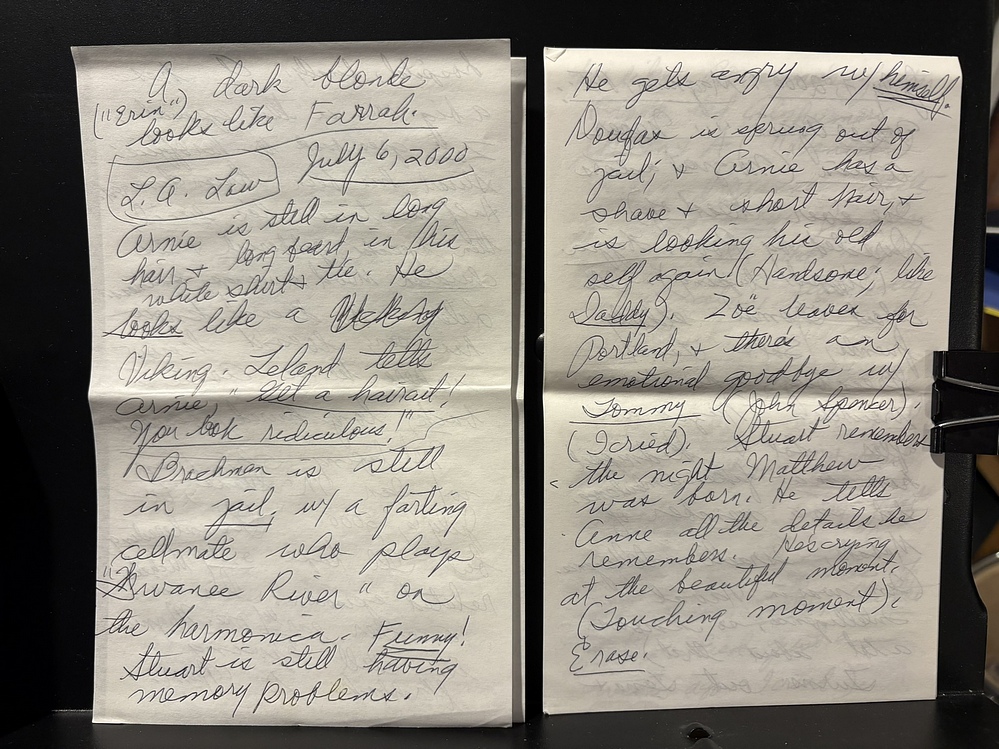 A dark blonde
("Erin")
looks like Farrah.
L.A. Law July 6, 2000
Arnie is still in long
hair & long beard, in his
white shirt & tie. He
looks like a
Viking. Leland tells
Arnie, "Get a haircut!
You look ridiculous!"
Brackman is still
in jail, w/ a farting
cellmate who plays
"Swanee River" on
the harmonica. Funny!
Stuart is still having
memory problems.
He gets angry w/ himself.
Douglas is sprung out of
jail, & Arnie has a
shave & short hair, &
is looking his old
self again! (Handsome, like
Daddy). Zoë leaves for
Portland, & there's an
emotional goodbye w/
Tommy (John Spencer).
(I cried). Stuart remembers
the night Matthew
was born. He tells
Anne all the details he
remembers. He's crying
at the beautiful moment.
(Touching moment).
Erase.